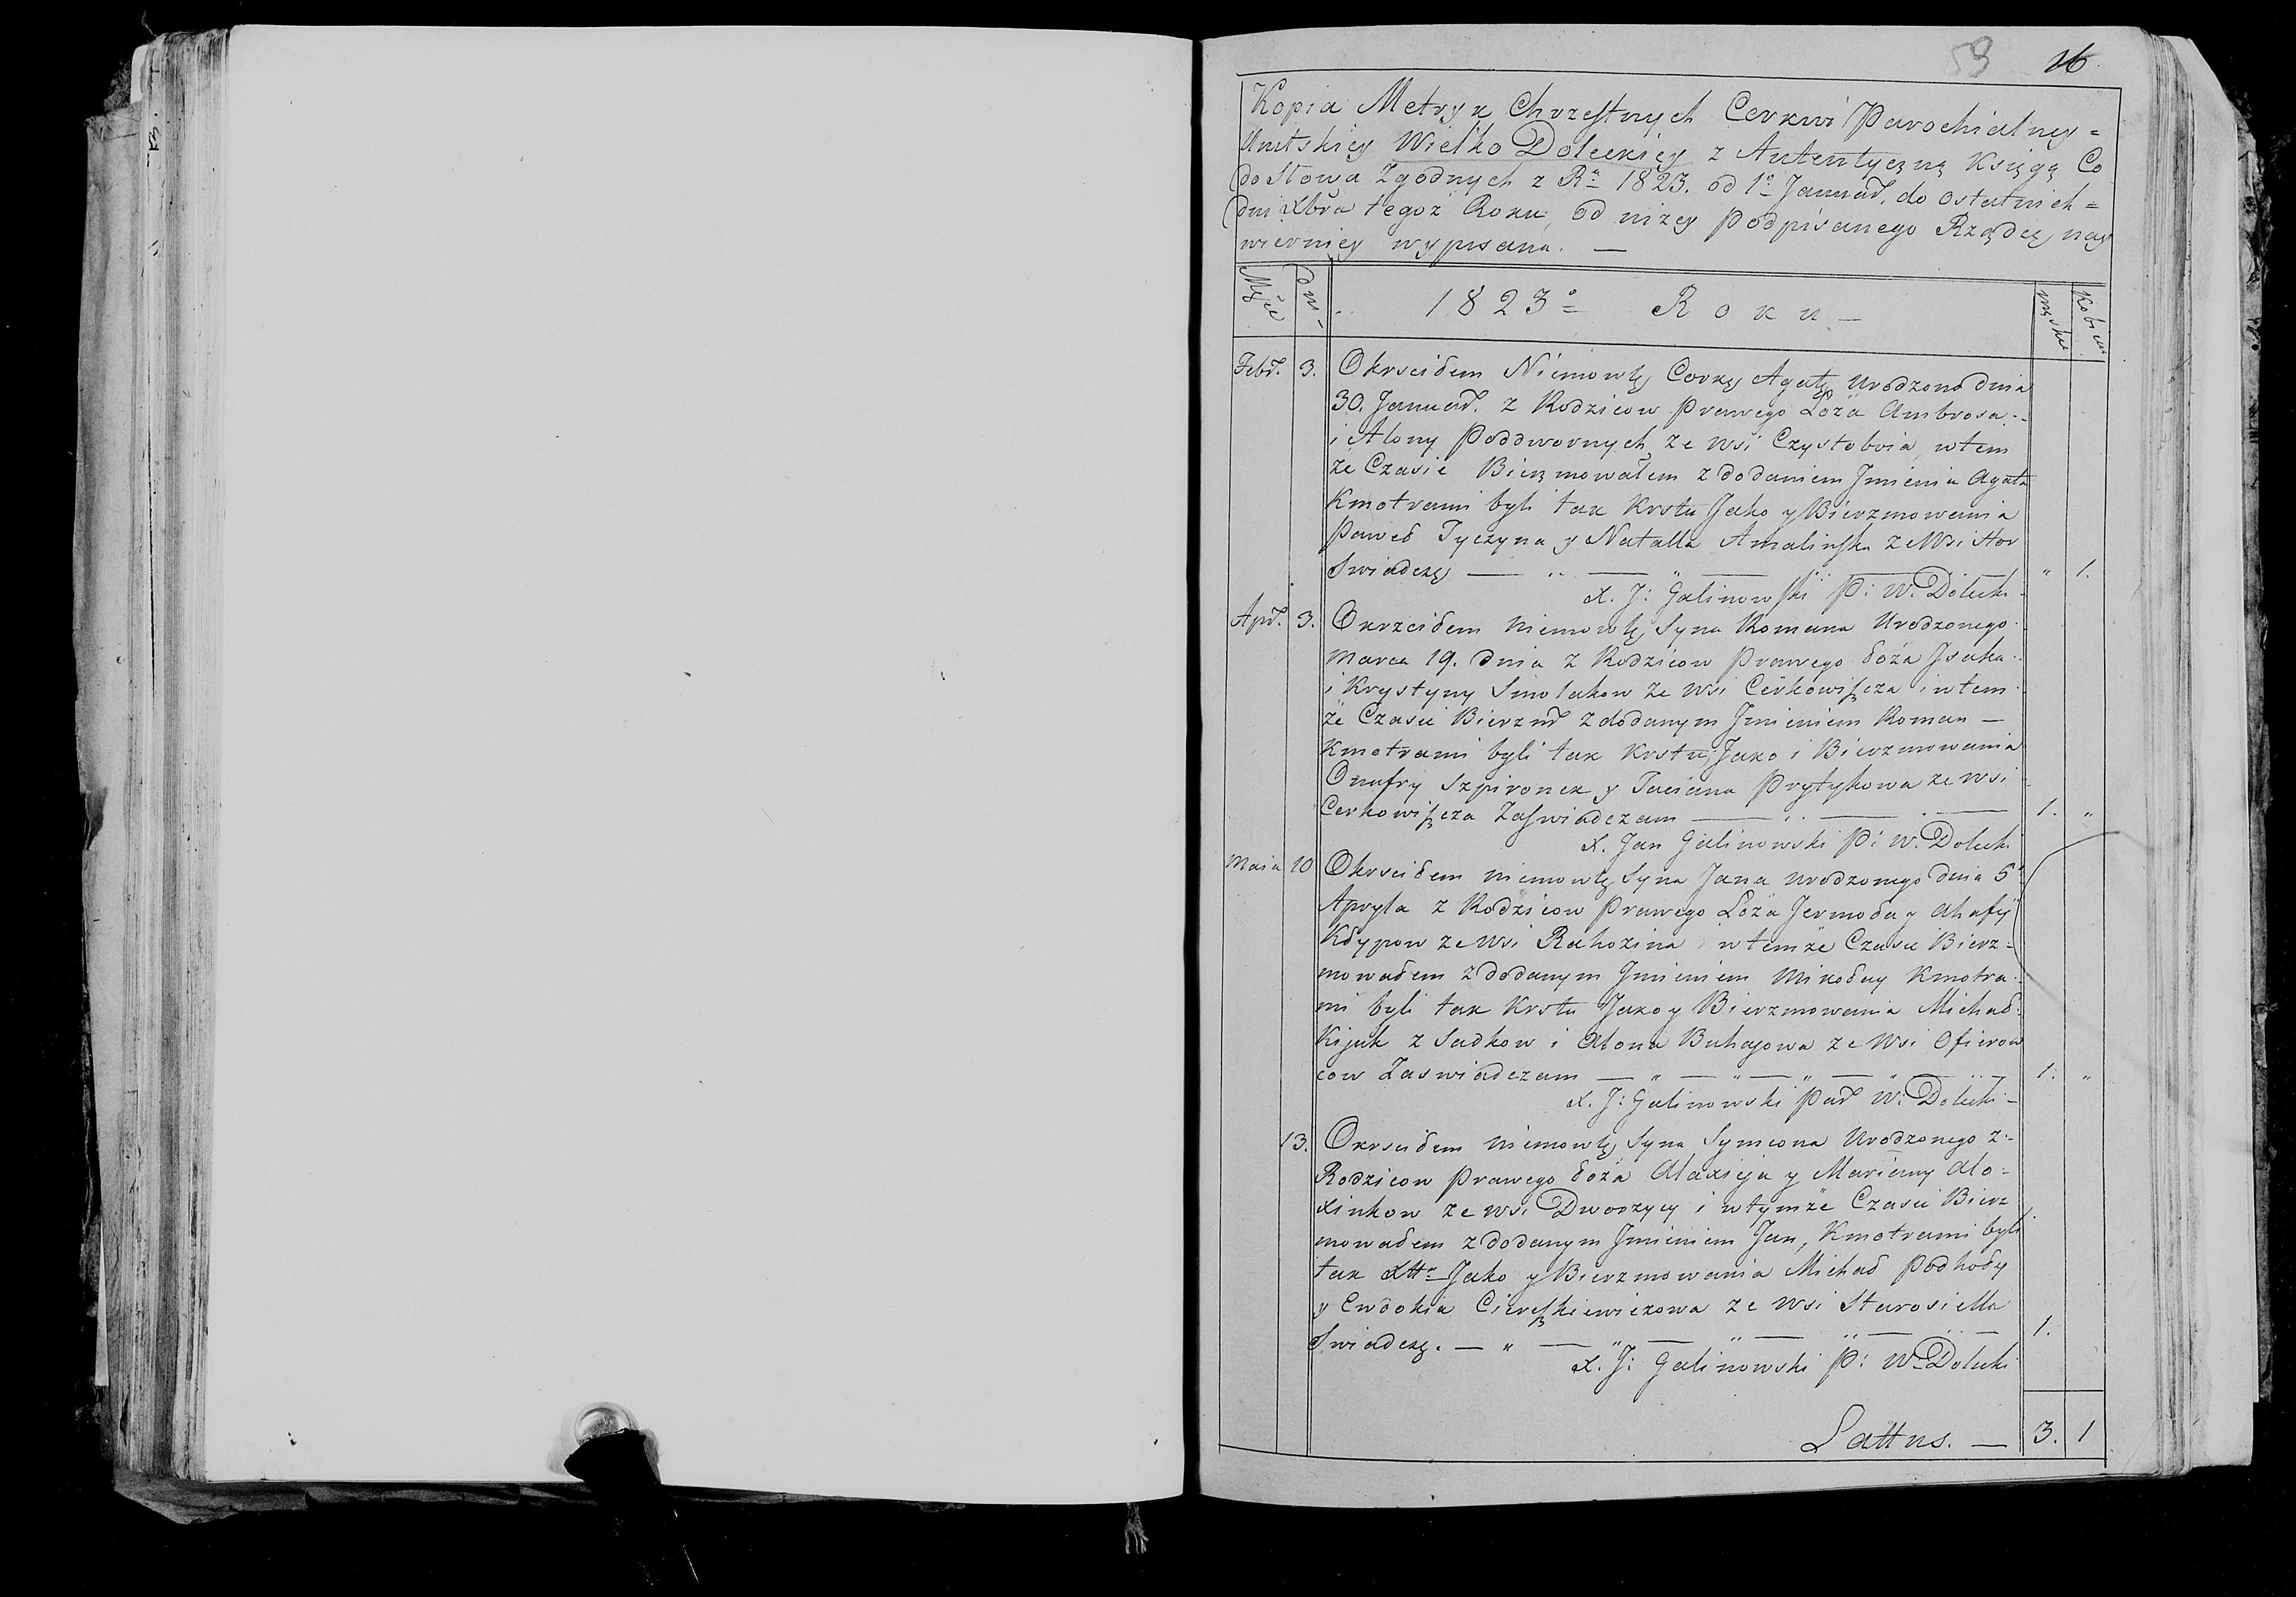 59 16
Kopia Metryk Chrzestnych Cerkwi Parochialney =
Unitskiey Wielko Doleckiey z Autentyczną Księgą Co
do Słowa Zgodnych z Rº 1823. od 1º Januar. do ostatnich =
dni Xbra tegoż Roku, od niżey podpisanego Rządcę nay
wierniey wypisana. —
Msce dni 1823º Roku — męskie Kobiece
Febr. 3. Okrsciłem Niemowlę Corkę Agatę Urodzoną dnia
30. Januar. z Rodzicow Prawego Łoża Ambrosa
i Alony Poddwornych ze wsi Czystobria, w tem
że Czasie Bierzmowałem z dodaniem Jmienia Agata
Kmotrami byli tak Krstu Jako y Bierzmowania
Paweł Tyczyna y Natalla Amalinska ze Wsi Hor
Swiadczę — " — " — " 1.
X. J: Galinowski P: W. Dolecki
Apr. 3. Okrzciłem niemowlę Syna Romana Urodzonego
Marca 19. dnia z Rodzicow Prawego Łoża Jsaka
i Krystyny Smolakow ze wsi Cerkowiszcza i w tem
że Czasie Bierzm z dodanym Jmieniem Roman —
Kmotrami byli tak Krstu, Jako i Bierzmowania
Onufry Szpironek y Taciana Prytykowa ze wsi
Cerkowiszcza Zaswiadczam — " — 1. "
X. Jan Galinowski P: W. Dolecki
Maia 10 Okrsciłem niemowlę Syna Jana urodzonego dnia 5º
Apryla z Rodzicow Prawego Łoża Jermoła y Ahafij
Kłypow ze wsi Rahozina i w temże Czasie Bierz-
mowałem z dodanym Jmieniem Mikołay Kmotra
mi byli tak Krstu Jako y Bierzmowania Michał
Kijuk z Sadkow i Alona Buhajowa ze Wsi Ofierow
cow Zaswiadczam — " — " — " — " 1. "
X. J: Galinowski Par W: Dolecki —
13. Okrsciłem niemowlę Syna Symiona Urodzonego z
Rodzicow Prawego Łoża Alaxieja y Maricnny Alo-
xinkow ze wsi Dworzycy i w tymże Czasie Bierz
mowałem z dodanym Jmieniem Jan, Kmotrami byli
tak Jako y Bierzmowania Michał Podhoły
y Ewdokia Ciereszkiewiczowa ze wsi Starosiella
Swiadczę. — " — " — " — 1.
X. J: Galinowski P: W Dolecki
Lattus. — 3. 1